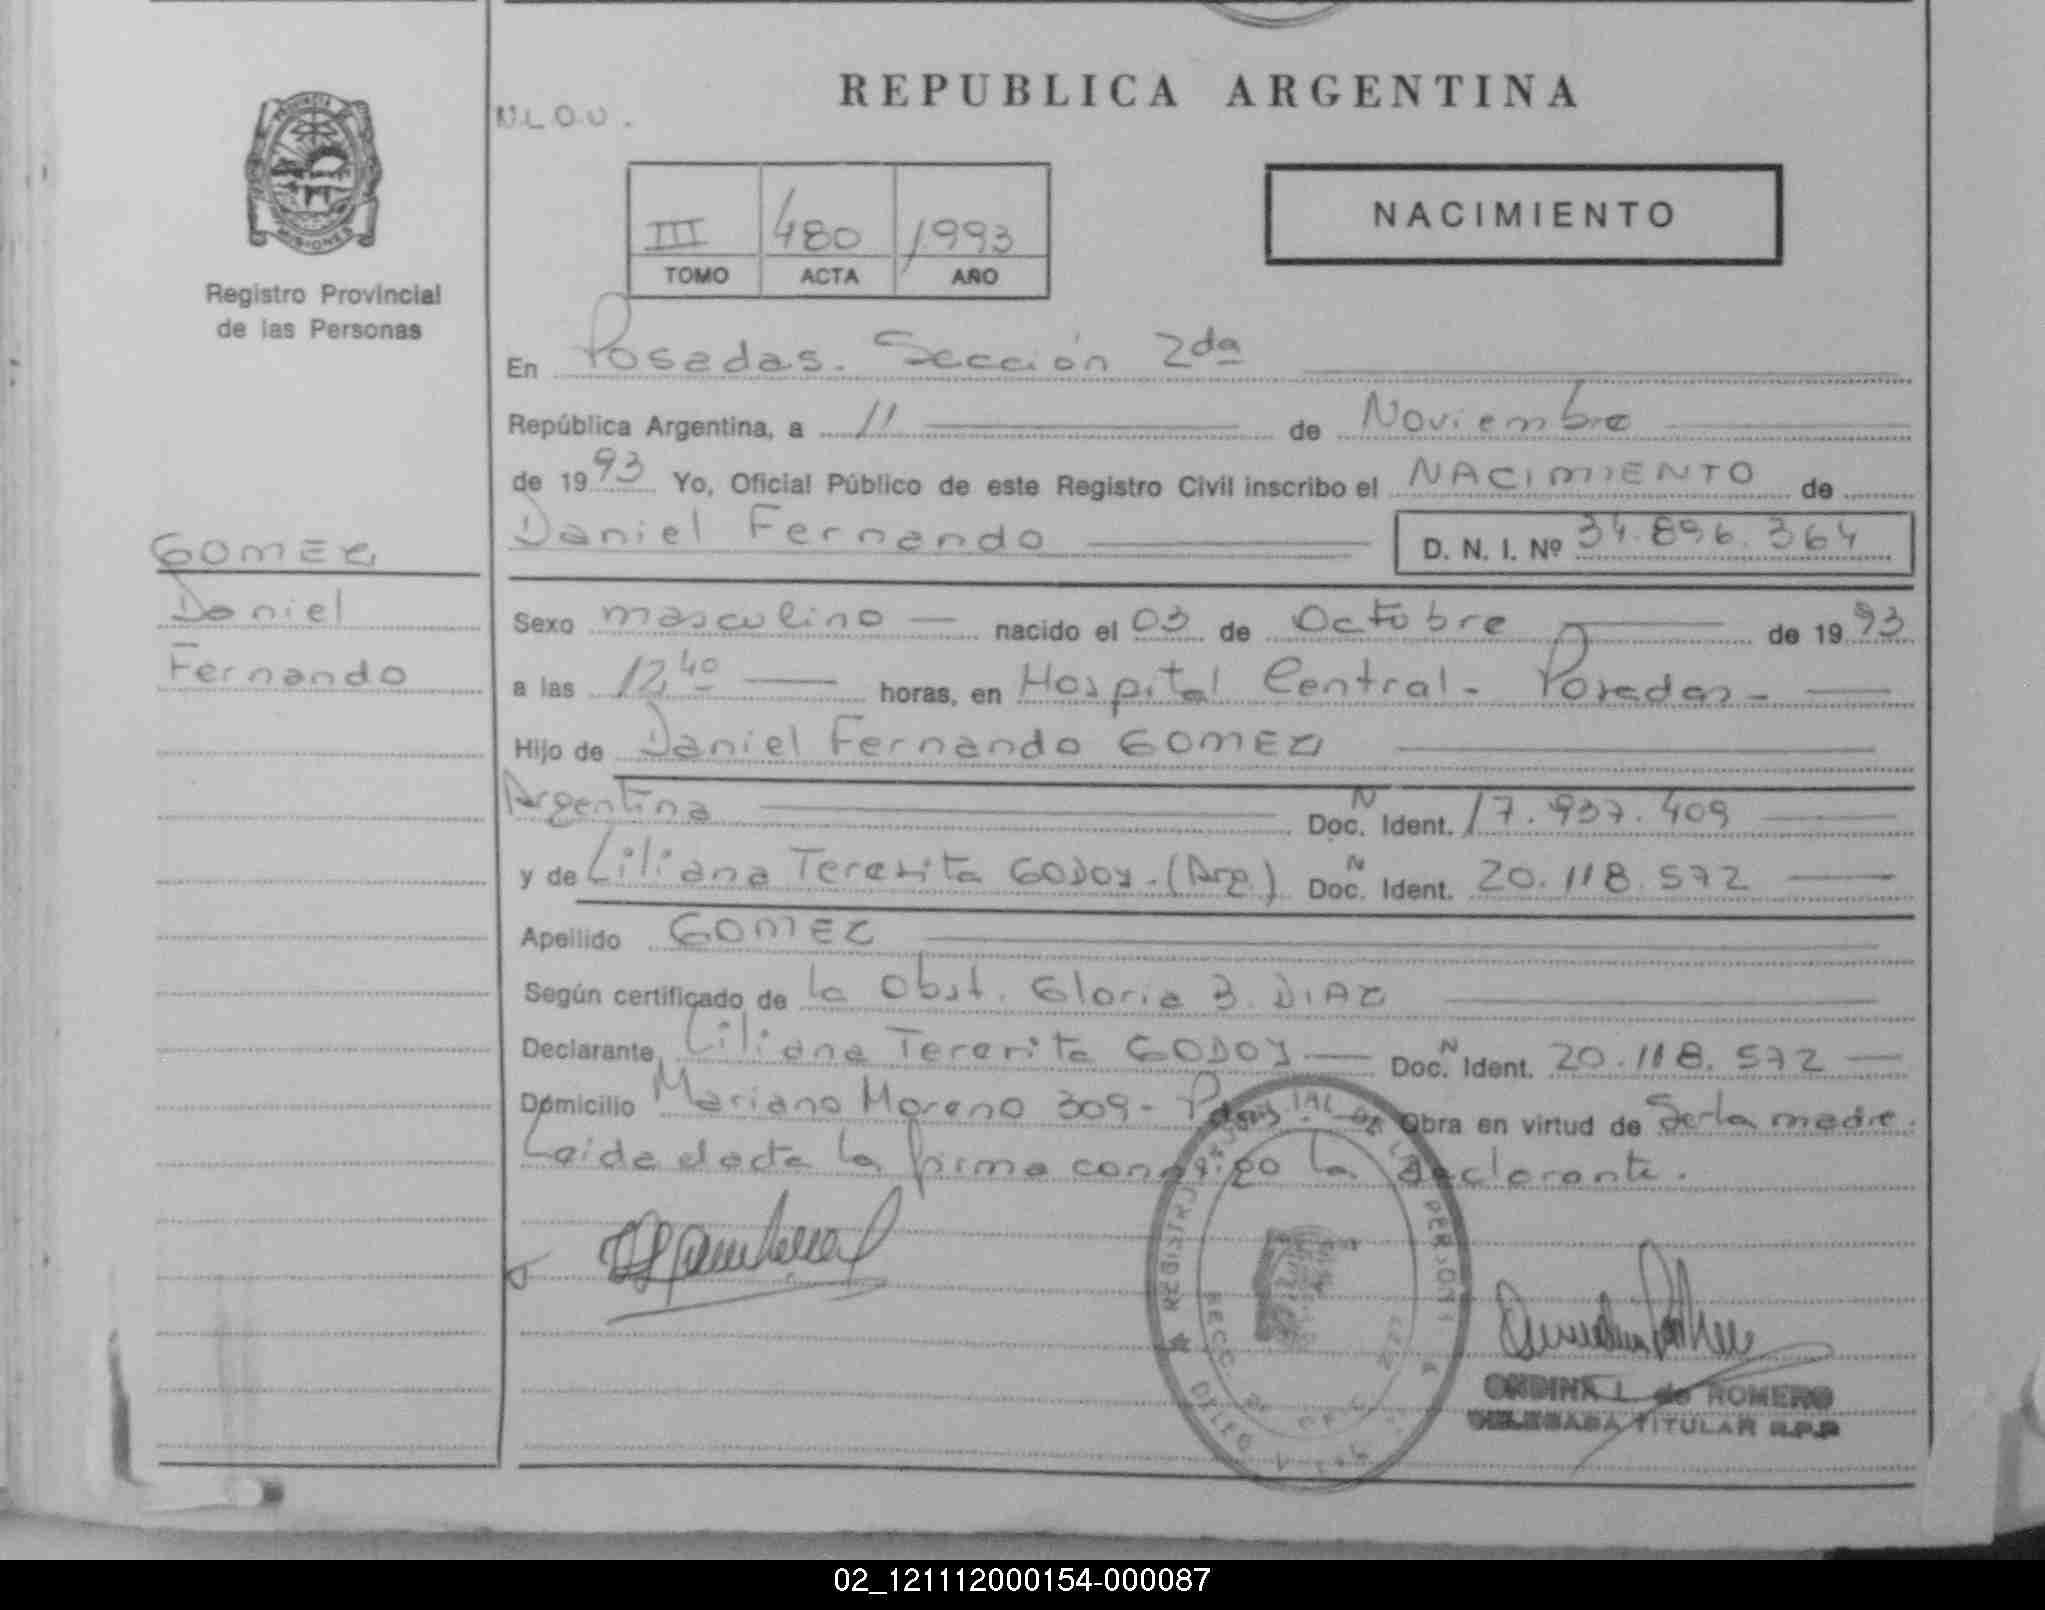 REPUBLICA ARGENTINA
N.L.O.U.
PROVINCIA
MISIONES
Registro Provincial
de las Personas
III 480 1993
TOMO ACTA AÑO
NACIMIENTO
En Posadas. Sección 2da
República Argentina, a 11 de Noviembre
de 1993 Yo, Oficial Público de este Registro Civil inscribo el NACIMIENTO de
Daniel Fernando D. N. I. Nº 34.896.364
GOMEZ
Daniel
Fernando
Sexo masculino nacido el 03 de Octubre de 1993
a las 12,40 horas, en Hospital Central - Posadas -
Hijo de Daniel Fernando GOMEZ
Argentina Doc. N Ident. 17.937.409
y de Liliana Teresita GODOY. (Arg.) Doc. N Ident. 20.118.572
Apellido GOMEZ
Según certificado de la Obst. Gloria B. DIAZ
Declarante Liliana Teresita GODOY Doc. N Ident. 20.118.572
Domicilio Mariano Moreno 309 - Obra en virtud de Ser la madre.
Leida el acta la firma conmigo la declarante.
ONDINA L. de ROMERO
DELEGADA TITULAR R.P.P
02_121112000154-000087